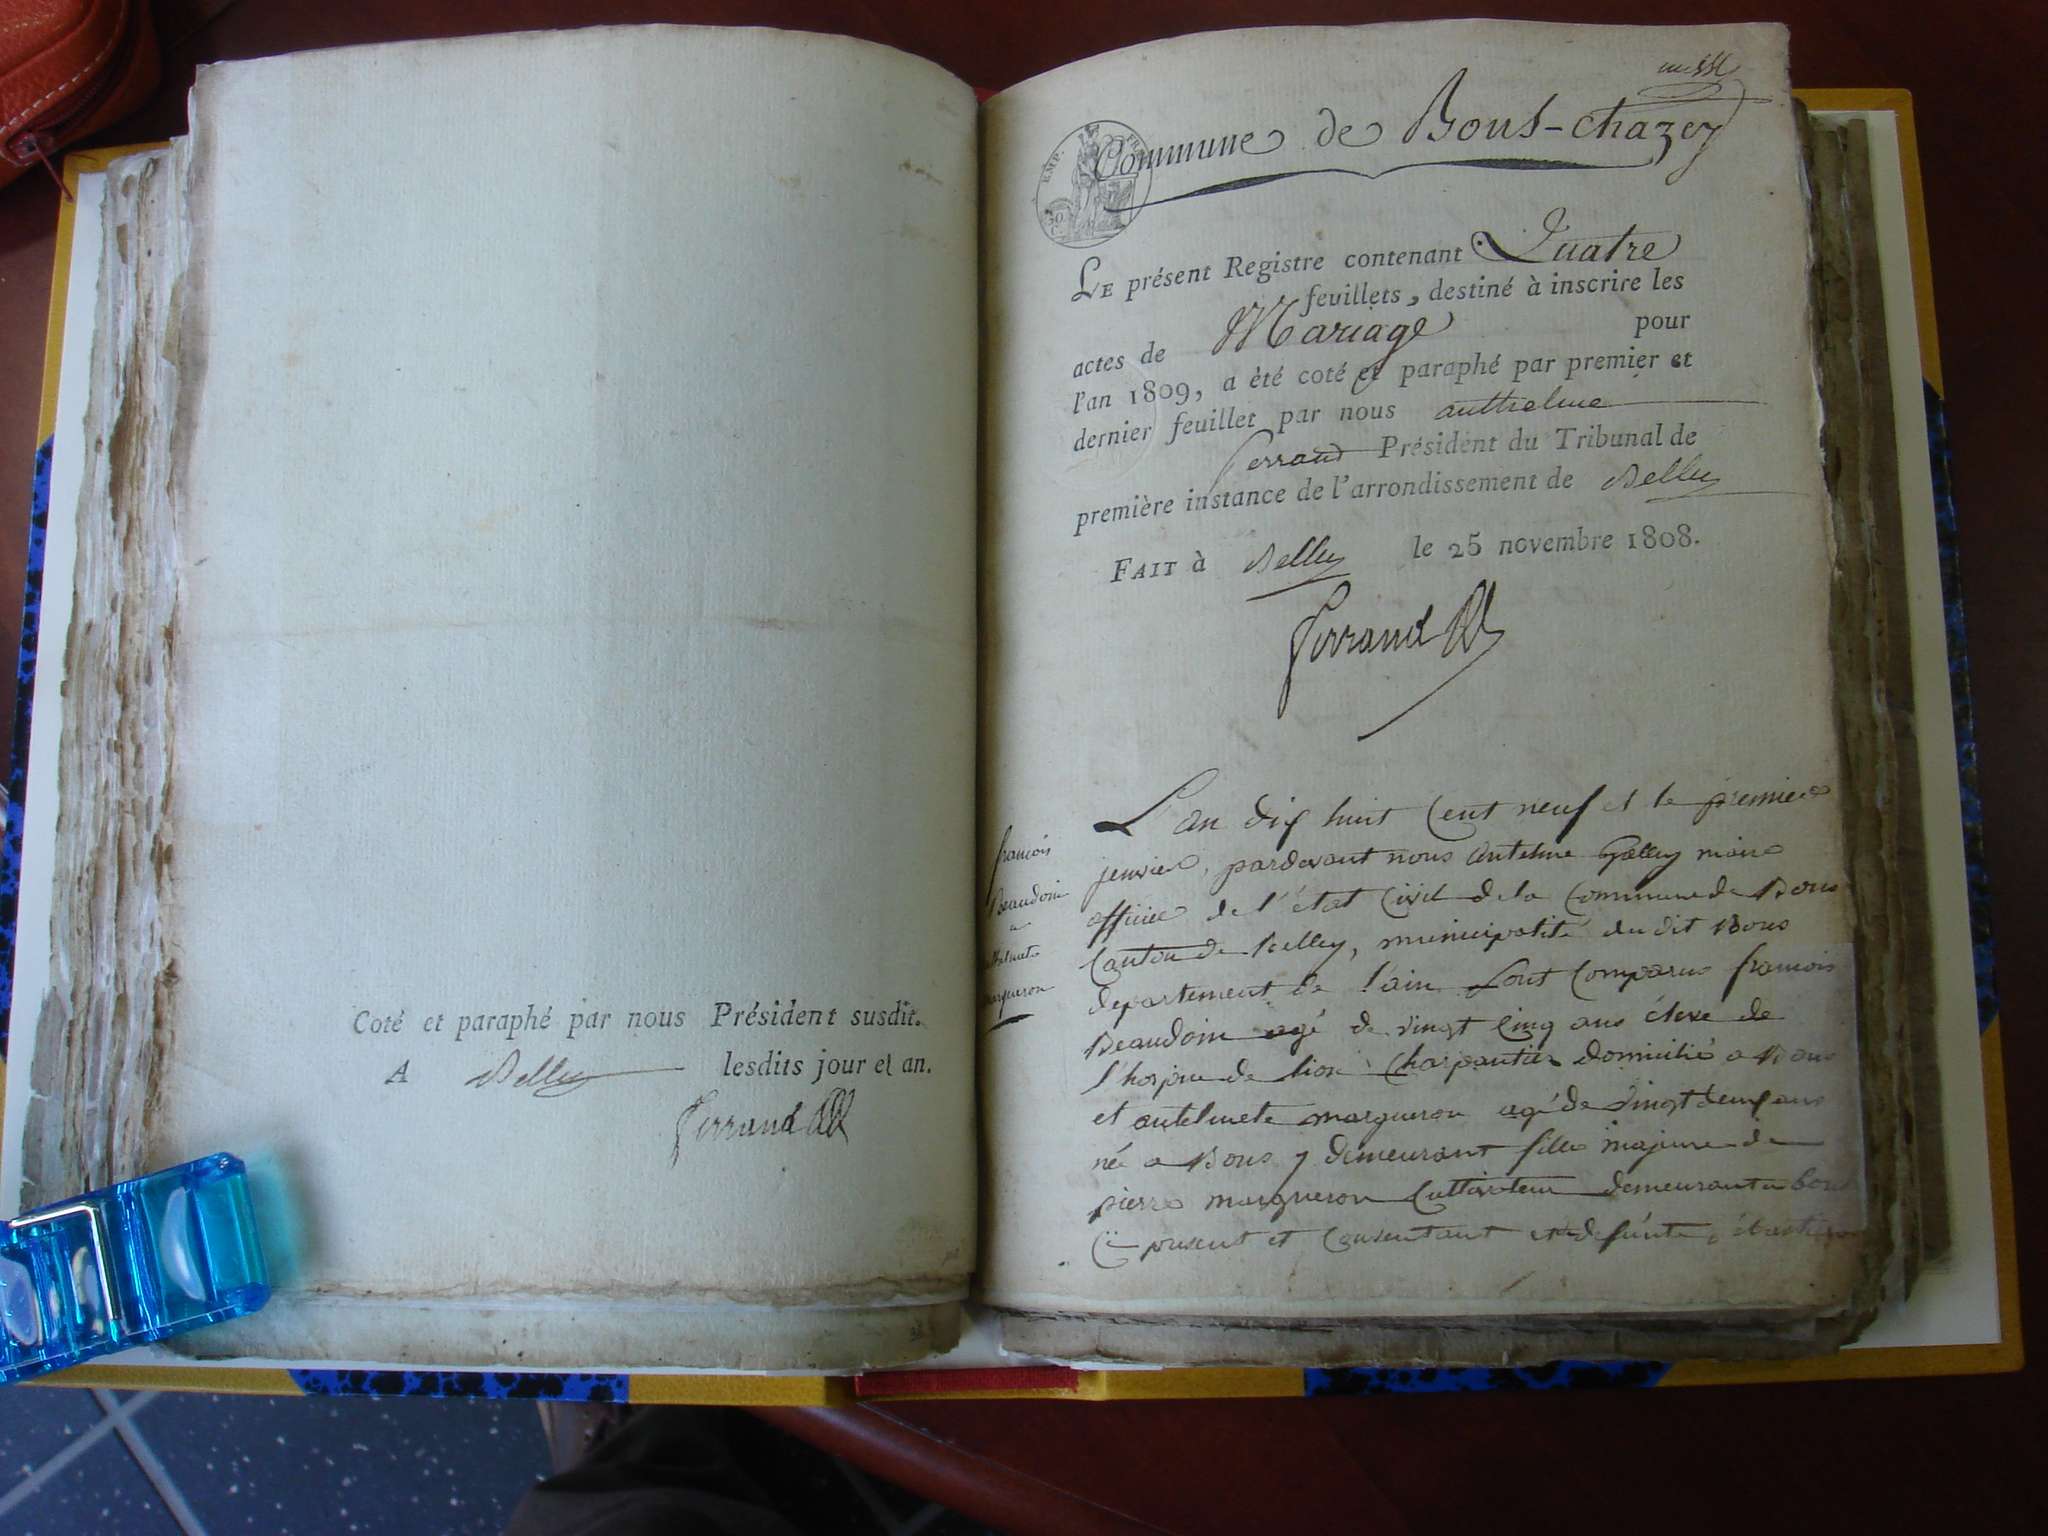 Coté et paraphé par nous Président susdit.
A Belley lesdits jour et an.
Ferrand
Commune de Bons-chazey
EMP. FR
50 C.
LE présent Registre contenant Quatre
feuillets, destiné à inscrire les
actes de Mariage pour
l'an 1809, a été coté et paraphé par premier et
dernier feuillet par nous anthelme
ferrand Président du Tribunal de
première instance de l'arrondissement de Belley
FAIT à Belley le 25 novembre 1808.
Ferrand
francois
Beaudoin
a
margueron
L'an dix huit Cent neuf et le premier
jenvier, pardevant nous Antelme maire
officier de l'état Civil de la Commune de Bons
Canton de Belley, municipalité du dit Bons
departement de l'ain Sont Comparus francois
Beaudoin agé de vingt Cinq ans éleve de
l'hospice de lion Charpantier domicilié a Bons
et antelmete margueron agé de vingt deux ans
née a Bons y demeurant fille majeure de
pierre margueron Cultivateur demeurant a bons
present et Consentant et de defunte